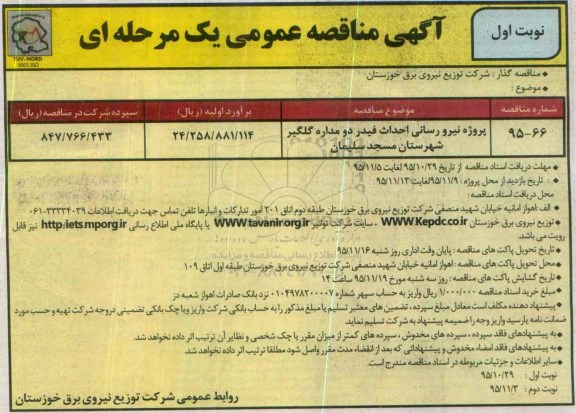 نوبت اول
آگهی مناقصه عمومی یک مرحله ای
TUV-NORD
● مناقصه گذار: شرکت توزیع نیروی برق خوزستان
● موضوع:
شماره مناقصه موضوع مناقصه برآورد اولیه (ریال) سپرده شرکت در مناقصه (ریال)
۹۵-۶۶ پروژه نیرو رسانی احداث فیدر دو مداره گلگیر شهرستان مسجد سلیمان ۲۴/۲۵۸/۸۸۱/۱۱۴ ۸۴۷/۷۶۶/۴۳۳
● مهلت دریافت اسناد مناقصه از تاریخ ۹۵/۱۰/۲۹ لغایت ۹۵/۱۱/۵
● تاریخ بازدید از محل پروژه: ۹۵/۱۱/۹ لغایت ۹۵/۱۱/۱۳
محل دریافت اسناد مناقصه:
● الف: اهواز امانیه خیابان شهید منصفی شرکت توزیع نیروی برق خوزستان طبقه دوم اتاق ۲۰۱ امور تدارکات و انبارها تلفن تماس جهت دریافت اطلاعات ۳۳۳۳۴۰۳۹-۰۶۱
● توزیع نیروی برق خوزستان WWW.Kepdc.co.ir ، سایت شرکت توانیر WWW.tavanir.org.ir یا پایگاه ملی اطلاع رسانی http:iets.mporg.ir نیز قابل
رویت می باشد.
● تاریخ تحویل پاکت های مناقصه: پایان وقت اداری روز شنبه ۹۵/۱۱/۱۶
● محل تحویل پاکت های مناقصه: اهواز امانیه خیابان شهید منصفی شرکت توزیع نیروی برق خوزستان طبقه اول اتاق ۱۰۹
● تاریخ گشایش پاکت های مناقصه: روز سه شنبه مورخ ۹۵/۱۱/۱۹ ساعت ۱۴
● مبلغ خرید اسناد مناقصه ۱/۰۰۰/۰۰۰ ریال واریز به حساب سپهر شماره ۰۱۰۴۹۷۸۲۰۰۰۰۷ نزد بانک صادرات اهواز شعبه دز
● پیشنهاد دهنده مکلف است معادل مبلغ سپرده، تضمین های معتبر تسلیم یا مبلغ مذکور را به حساب بانکی شرکت واریز و یا چک بانکی تضمینی در وجه شرکت تهیه و حسب مورد
ضمانت نامه یا رسید واریز وجه را ضمیمه پیشنهاد به شرکت تسلیم نماید.
● به پیشنهادهای فاقد سپرده، سپرده های مخدوش، سپرده های کمتر از میزان مقرر یا چک شخصی و نظایر آن ترتیب اثر داده نخواهد شد.
● به پیشنهادهای فاقد امضاء مخدوش و پیشنهاداتی که بعد از انقضاء مدت مقرر واصل شود مطلقا ترتیب اثر داده نخواهد شد.
● سایر اطلاعات و جزئیات مربوطه در اسناد مناقصه مندرج است.
نوبت اول: ۹۵/۱۰/۲۹
نوبت دوم: ۹۵/۱۱/۳
روابط عمومی شرکت توزیع نیروی برق خوزستان